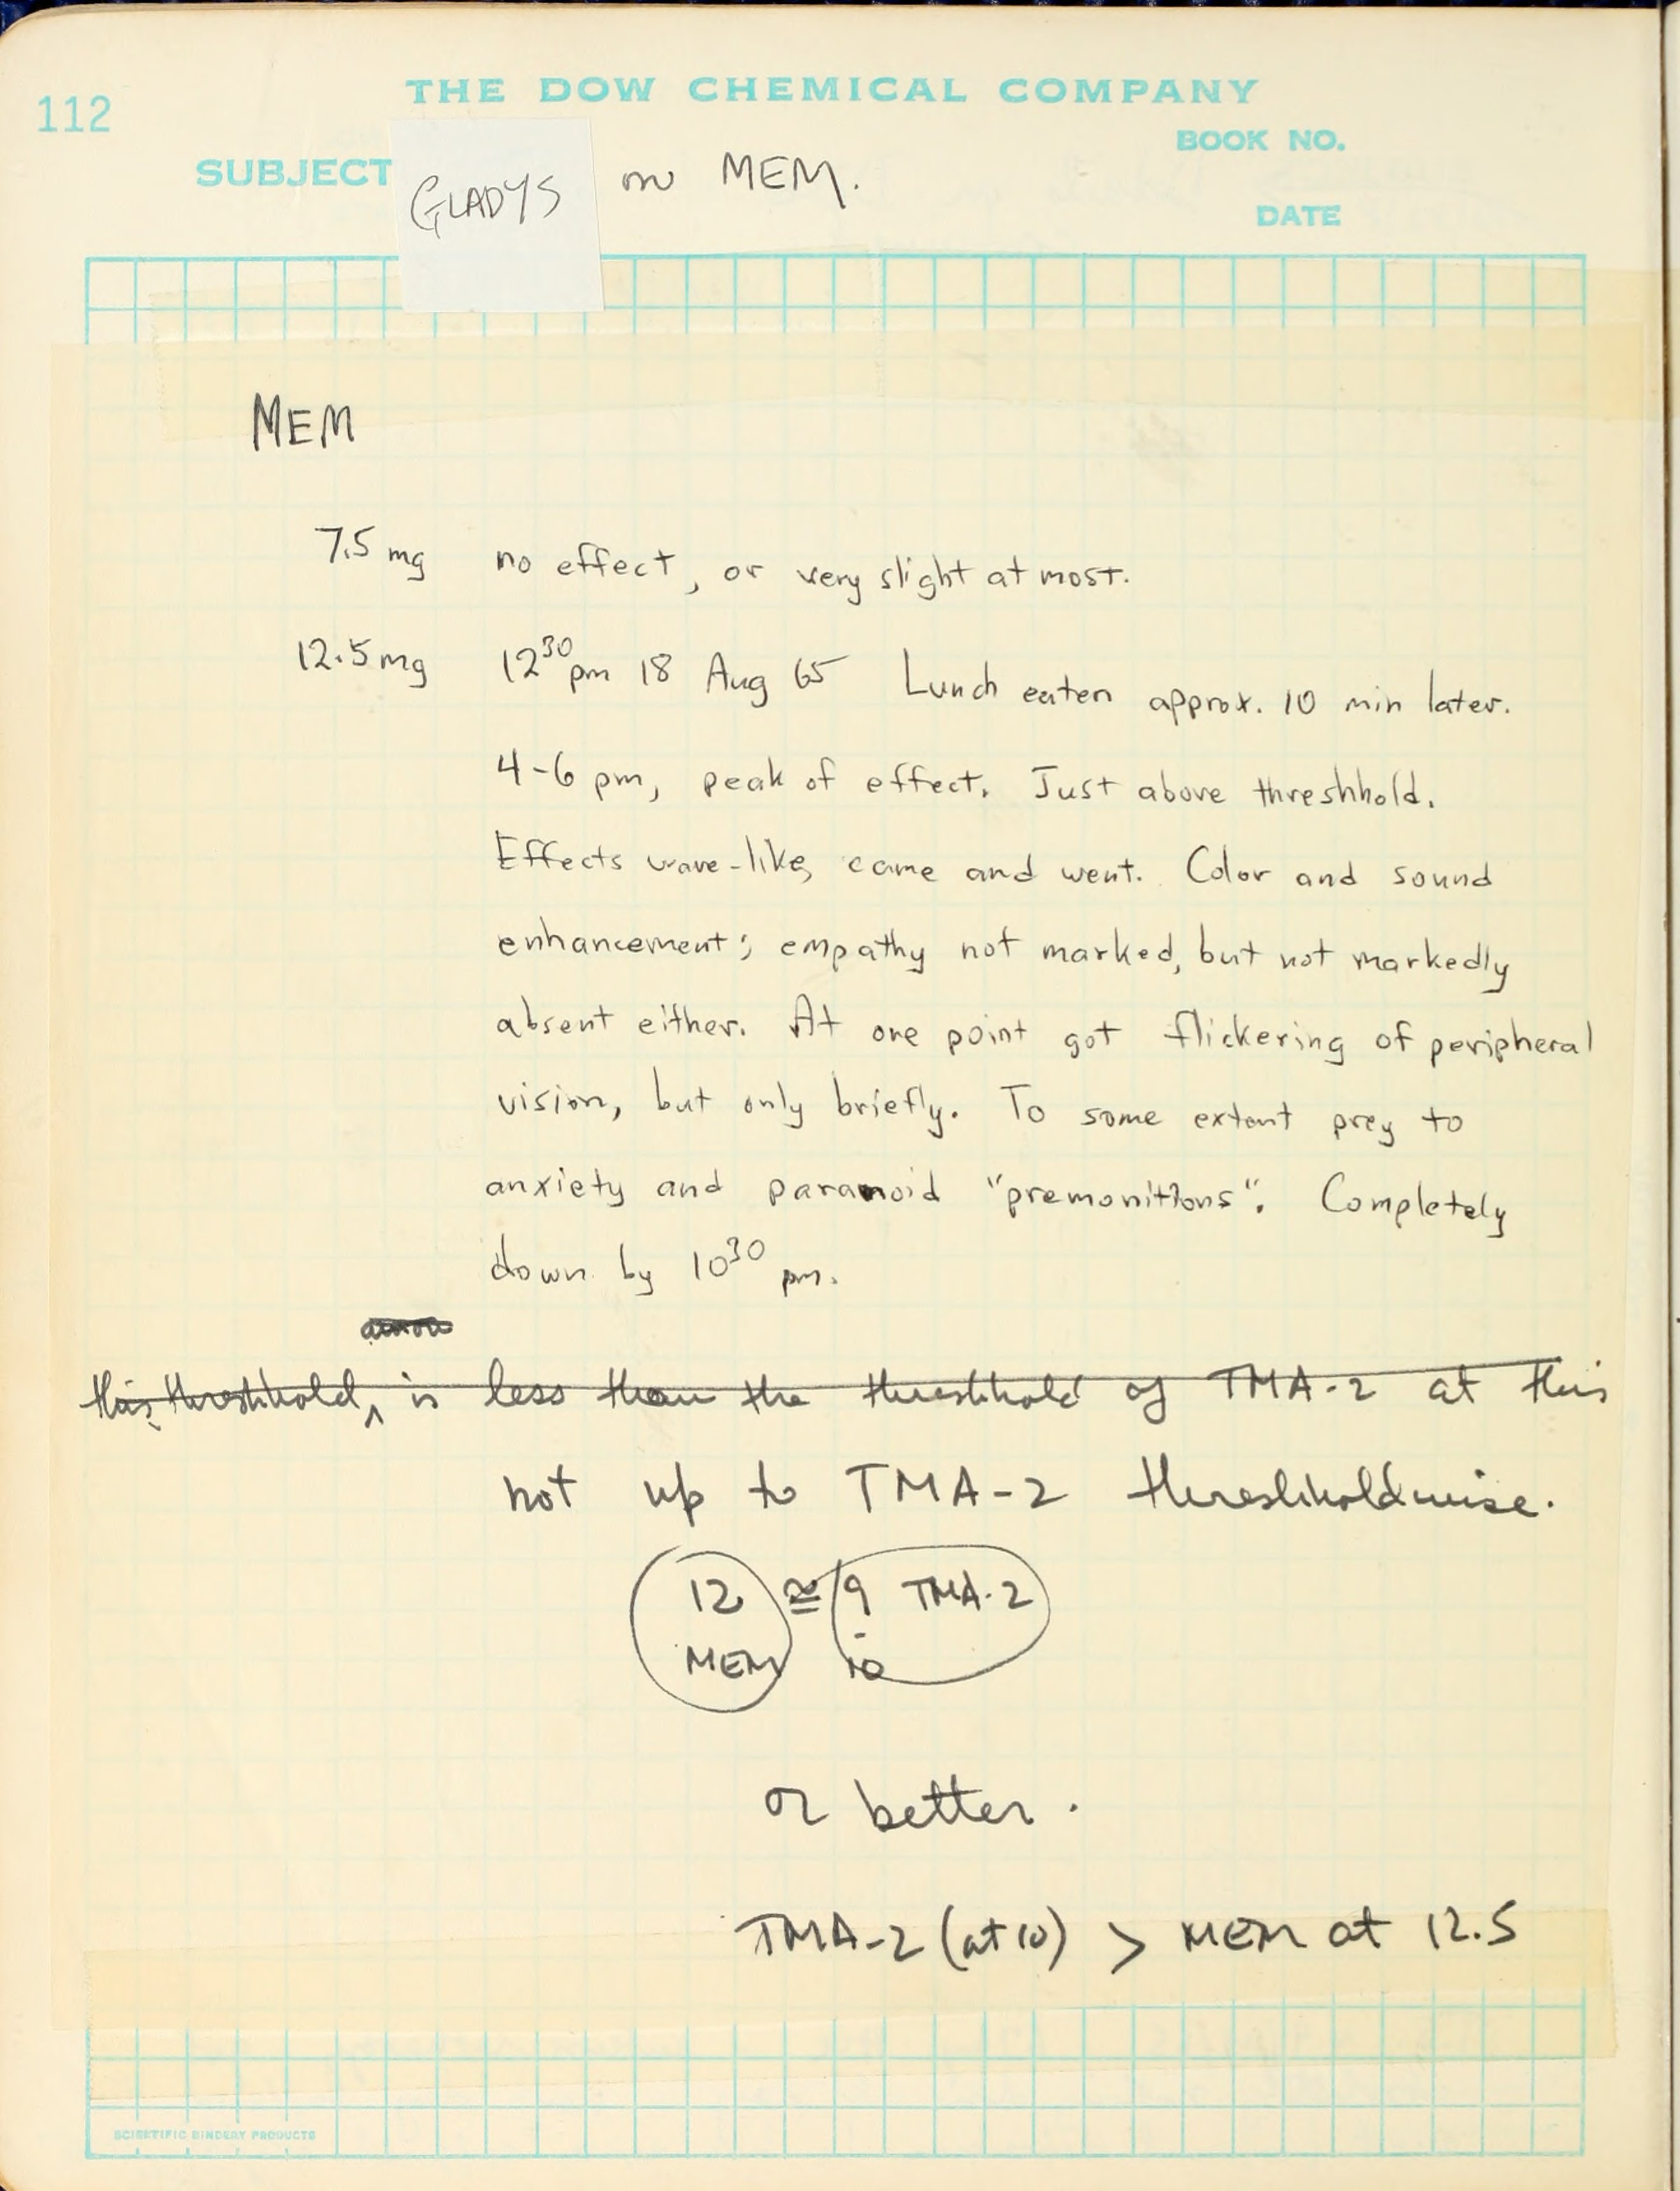 THE DOW CHEMICAL COMPANY
112
BOOK NO.
SUBJECT GLADYS on MEM.
DATE
MEM
7.5 mg no effect, or very slight at most.
12.5 mg 12³⁰ pm 18 Aug 65 Lunch eaten approx. 10 min later.
4-6 pm, peak of effect. Just above threshhold.
Effects wave-like, came and went. Color and sound
enhancement; empathy not marked, but not markedly
absent either. At one point got flickering of peripheral
vision, but only briefly. To some extent prey to
anxiety and paranoid "premonitions". Completely
down by 10³⁰ pm.
this threshhold, is less than the threshhold of TMA-2 at this
not up to TMA-2 threshholdwise.
12 ≅ 9 TMA-2
MEM 10
or better.
TMA-2 (at 10) > MEM at 12.5
SCIENTIFIC BINDERY PRODUCTS